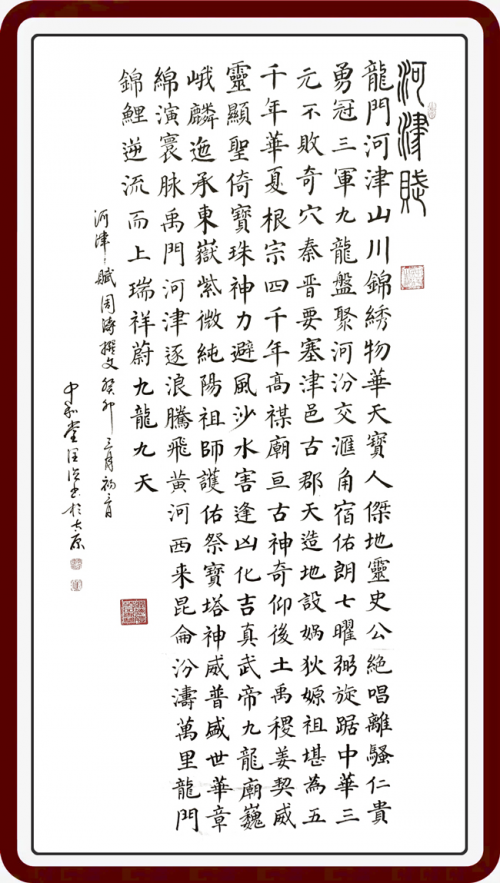 河津賦
龍門河津山川錦綉物華天寶人傑地靈史公絶唱離騷仁貴
勇冠三軍九龍盤聚河汾交滙角宿佑朗七曜弼旋踞中華三
元不敗奇穴秦晋要塞津邑古郡天造地設媧狄嫄祖堪為五
千年華夏根宗四千年高禖廟亘古神奇仰後土禹稷姜契威
靈顯聖倚寶珠神力避風沙水害逢凶化吉真武帝九龍廟巍
峨麟迤承東嶽紫微純陽祖師護佑祭寶塔神威普盛世華章
綿演寰脉禹門河津逐浪騰飛黄河西来昆侖汾濤萬里龍門
錦鯉逆流而上瑞祥蔚九龍九天
河津賦周海撰文癸卯三月初二日
中和堂汪浩書於太原